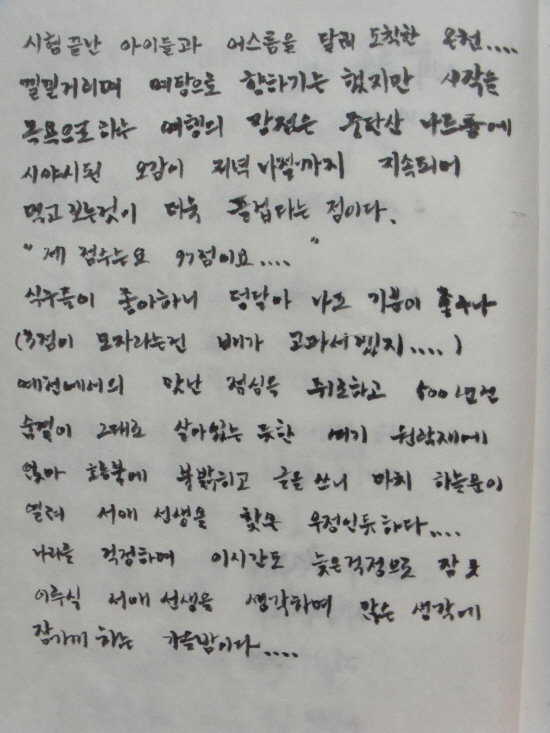 시험 끝난 아이들과 어스름을 달려 도착한 온천....
낄낄거리며 여탕으로 향하기는 했지만 시작을
목욕으로 하는 여행의 장점은 중탄산 나트륨에
시야시된 오감이 저녁 나절까지 지속되어
먹고 보는것이 더욱 즐겁다는 점이다.
"제 점수는요 97점이요...."
식구들이 좋아하니 덩달아 나도 기분이 좋구나
(3점이 모자라는건 배가 고파서겠지....)
예천에서의 맛난 점심을 뒤로하고 500년전
숨결이 그대로 살아있는 듯한 여기 원락재에
앉아 호롱불에 불밝히고 글을 쓰니 마치 하늘문이
열려 서애 선생을 찾은 우정인듯하다....
나라를 걱정하며 이시간도 늦은걱정으로 잠 못
이루실 서애 선생을 생각하며 많은 생각에
잠기게 하는 가을밤이다....